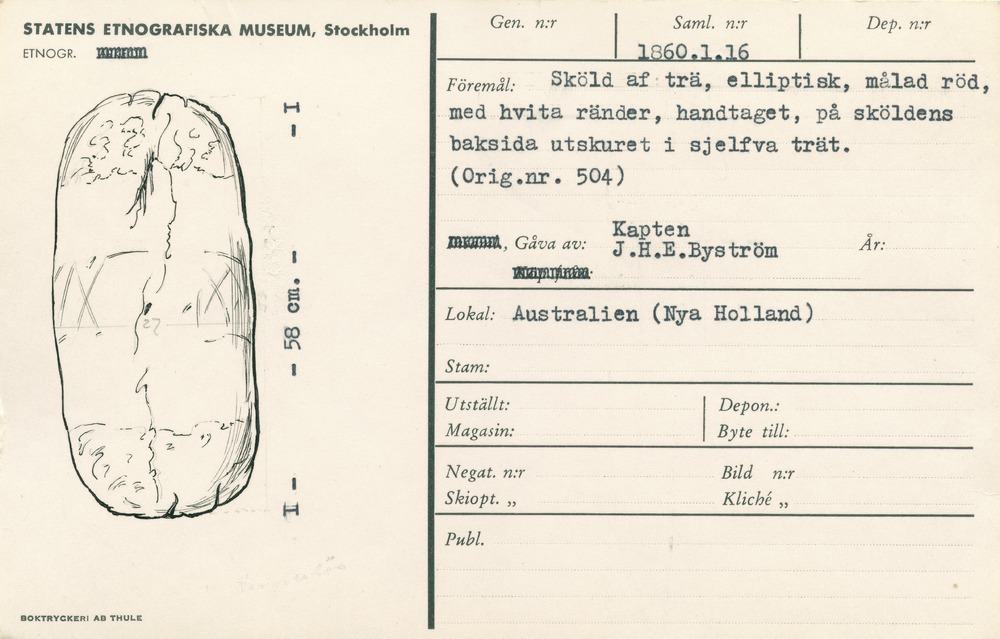 STATENS ETNOGRAFISKA MUSEUM, Stockholm
ETNOGR.
I - - 58 cm. - - I
27
BOKTRYCKERI AB THULE
Gen. n:r
Saml. n:r
1860.1.16
Dep. n:r
Föremål: Sköld af trä, elliptisk, målad röd,
med hvita ränder, handtaget, på sköldens
baksida utskuret i sjelfva trät.
(Orig.nr. 504)
, Gåva av: Kapten
J.H.E.Byström
År:
Lokal: Australien (Nya Holland)
Stam:
Utställt:
Depon.:
Magasin:
Byte till:
Negat. n:r
Bild n:r
Skiopt. „
Kliché „
Publ.